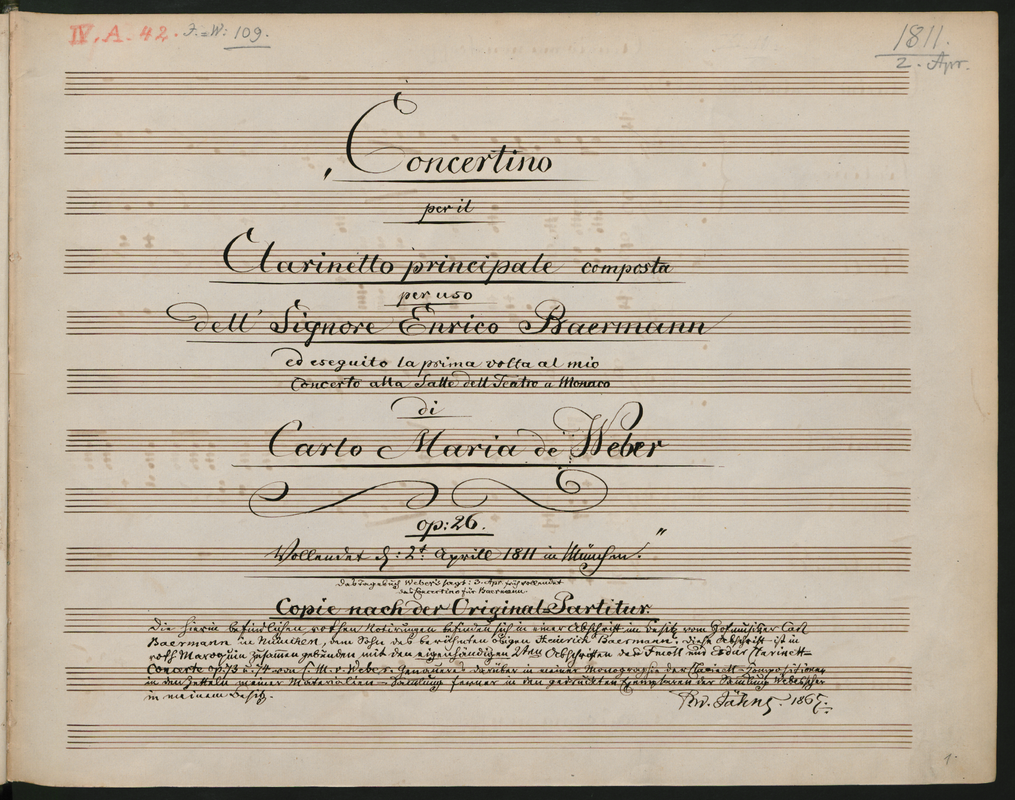 IV. A. 42. F.=W: 109.
1811.
2. Apr.
„Concertino
per il
Clarinetto principale composta
per uso
dell' Signore Enrico Baermann
ed eseguito la prima volta al mio
Concerto alla Salle dell Teatro a Monaco
di
Carlo Maria de Weber
op: 26.
Vollendet d: 2t Aprill 1811 in München."
Das Tagebuch Weber's sagt: 3. Apr. früh vollendet
das Concertino für Baermann.
Copie nach der Original-Partitur.
Die hierin befindlichen rothen Notirungen befinden sich in einer Abschrift im Besitz vom Hofmusiker Carl
Baermann in München, dem Sohn des berühmten obigen Heinrich Baermann; diese Abschrift ist in
roth Maroquin zusammengebunden mit den eigenhändigen 2ten Abschriften des F moll und Es dur Clarinett-
Concerte op. 73 u. 74 von C. M. v. Weber. Genaues darüber in meiner Monographie der Clarinett-Compositionen
in den Zetteln meiner Materialien-Samlung ferner in den gedruckten Exemplaren der Samlung Weberscher
in meinem Besitz.
F. W. Jähns. 1865.
1.